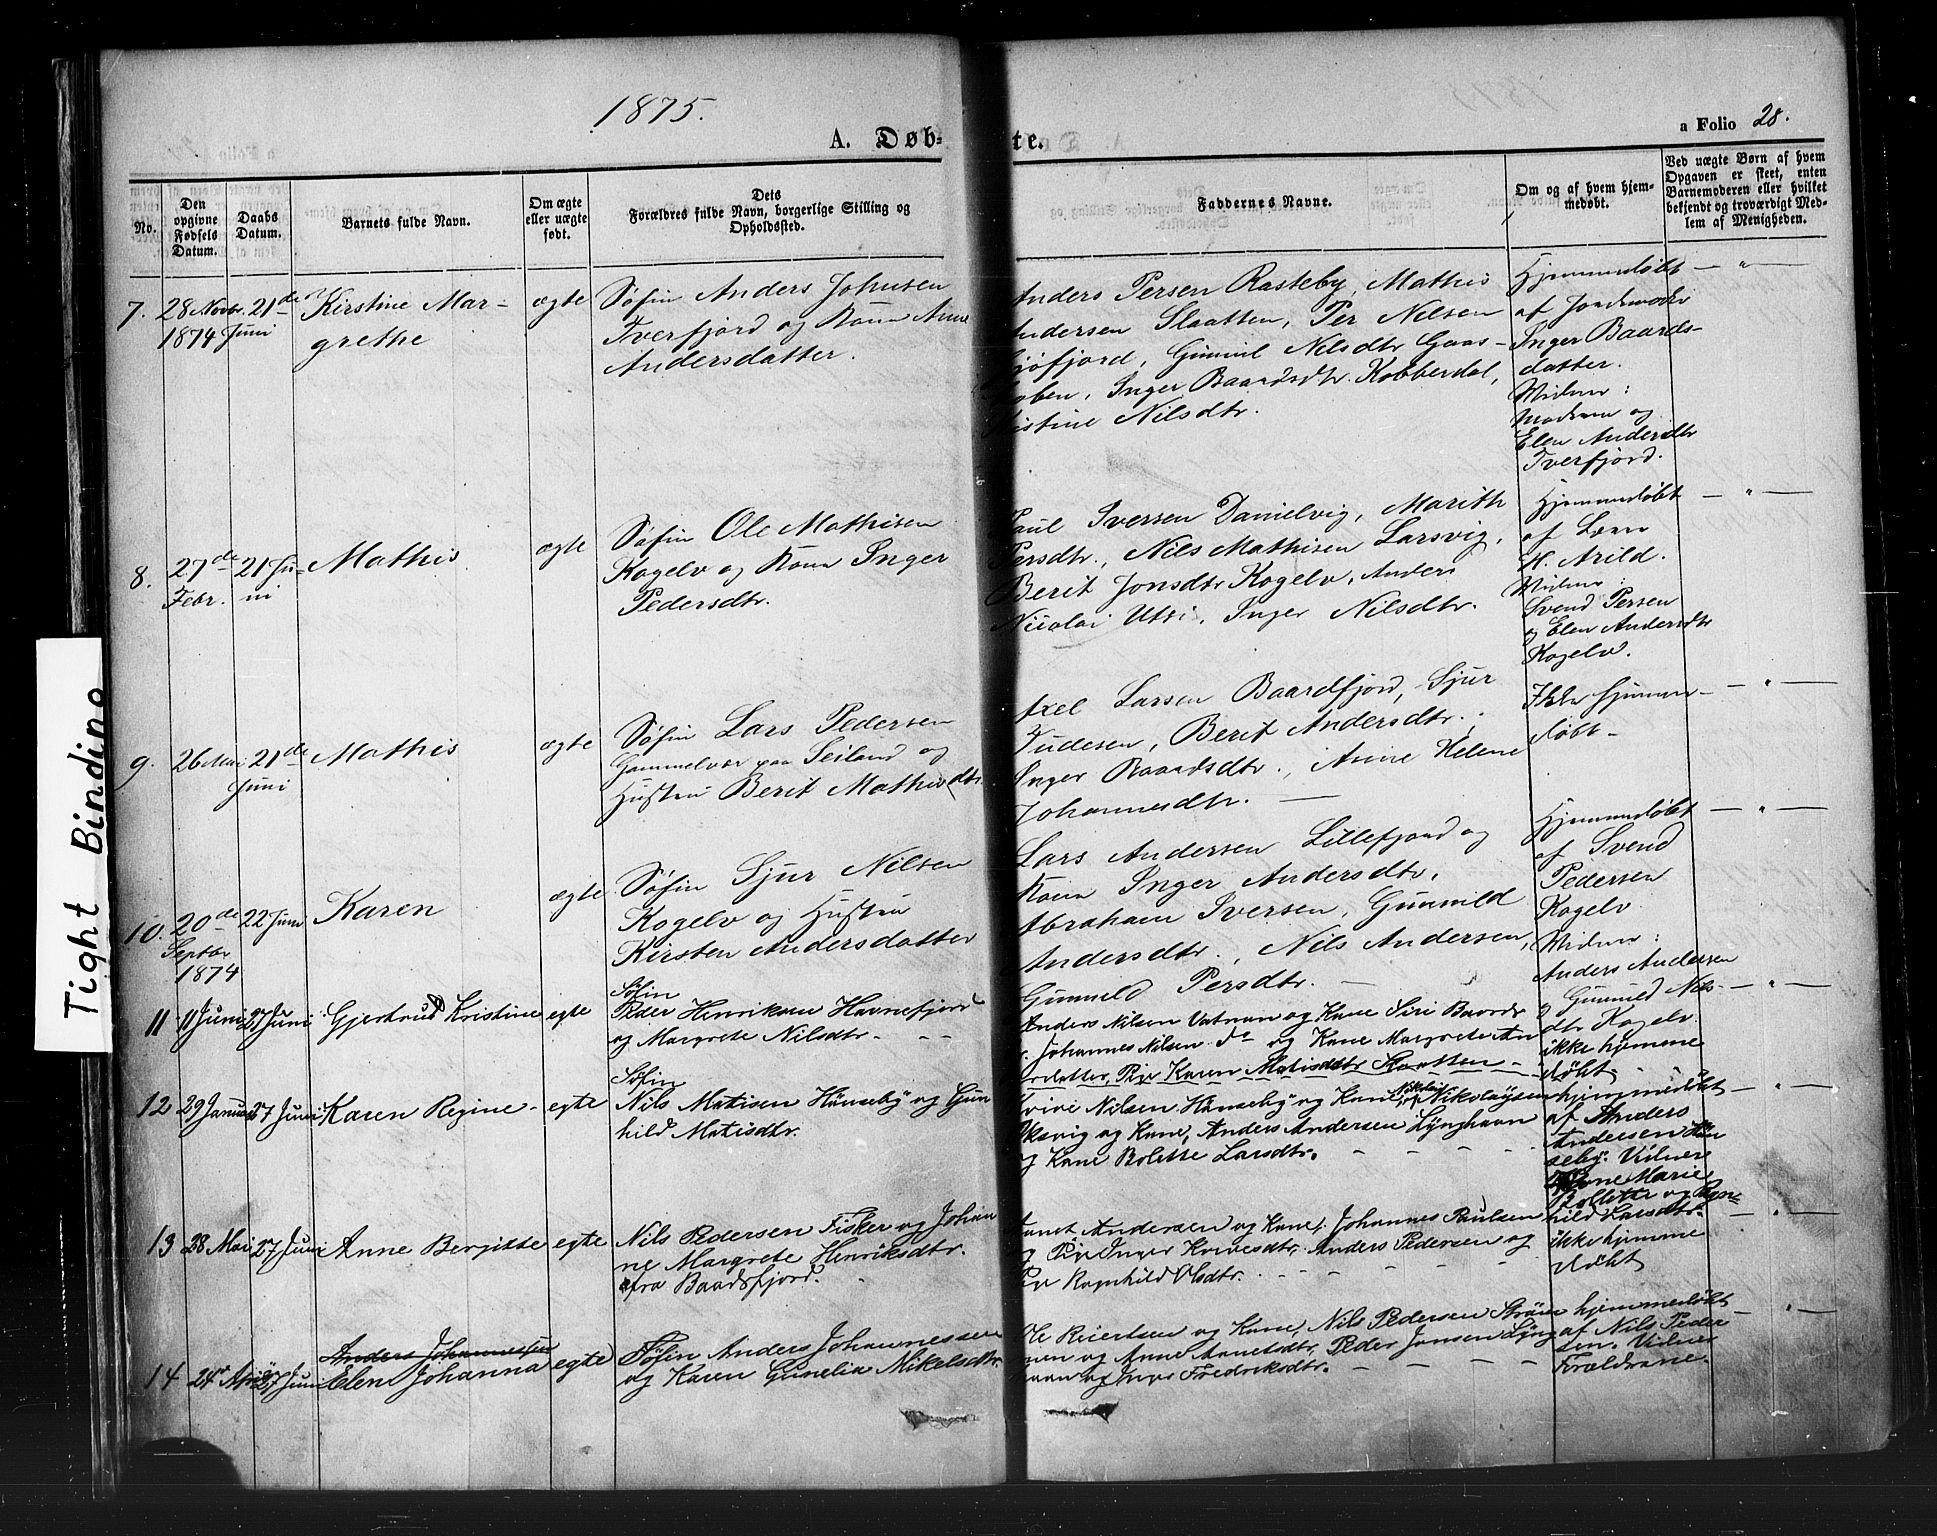 1875.
A. Døb-
te.
a Folio 28.
No.
Den opgivne Fødsels Datum.
Daabs Datum.
Barnets fulde Navn.
Om ægte eller uægte født.
Dets Forældres fulde Navn, borgerlige Stilling og Opholdssted.
Faddernes Navne.
Om og af hvem hjemmedøbt.
Ved uægte Børn af hvem Opgaven er skeet, enten Barnemoderen eller hvilket bekjendt og troværdigt Medlem af Menigheden.
7.
28 Novbr.
1874
21de
Juni
Kirstine Mar-
grethe
ægte
Søfin Anders Johnsen
Tverfjord og Kone Anne
Andersdatter.
Anders Persen Rasteby, Mathis
Andersen Slaatten, Per Nilsen
fjord, Gunnil Nilsdtr Gaas-
Inger Baardsdtr. Kobberdal,
Nilsdtr.
Hjemmedøbt
af Jordmoder
Inger Baards-
datter.
Vidner:
Moderen og
Elen Andersdtr
Tverfjord.
8.
27de
Febr.
21 Ju-
ni
Mathis
ægte
Søfin Ole Mathisen
Kogelv og Kone Inger
Pedersdtr.
Paul Iversen Danielvig, Marith
Persdtr., Nils Mathisen Larsvig,
Berit Jonsdtr Kogelv, Anders
Nicolai Utsi, Inger Nilsdtr.
Hjemmedøbt
af Læner
H. Arild.
Vidner:
Svend Persen
og Elen Andersdtr
Kogelv.
9.
26 Mai
21de
Juni
Mathis
ægte
Søfin Lars Pedersen
Gammelvær paa Seiland og
Hustru Berit Mathisdtr.
Axel Larsen Baardfjord, Sjur
Tudesen, Berit Andersdtr.,
Inger Baardsdtr., Anne Helene
Johannesdtr. —
Ikke hjemme-
døbt —
10.
20de
Septbr
1874
22 Juni
Karen
ægte
Søfin Sjur Nilsen
Kogelv og Hustru
Kirsten Andersdatter
Lars Andersen Lillefjord og
Kone Inger Andersdtr.,
Abraham Iversen, Gunnild
Andersdtr., Nils Andersen,
Gunnild Persdtr. —
Hjemmedøbt
af Svend
Pedersen
Kogelv.
Vidner:
Anders Andersen
og Gunnild Nils-
dtr Kogelv.
11
11 Juni
27 Juni
Gjertrud Kristine
egte
Søfin
Peder Henriksen Havnefjord
og Margrete Nilsdtr. - - -
Anders Nilsen Vatnan og Kane Siri Baards
Johannes Nilsen do og Kane Margrete An
datter, Pige Karen Matisdtr Slaatten -
ikke hjemme
døbt.
12
29 Januar
27 Juni
Karen Regine -
egte
Søfin
Nils Matisen Hönseby og Gun
hild Matisdtr.
Nilsen Hönseby og Kane, Nikolaysen
vig og Kane, Anders Andersen Lynghavn
og Kane Bolette Larsdtr. - - - - -
hjemmedøbt
af Anders
Andersen Hön
seby. Vidner
Anne Marie
Bollette og Ragn-
hild Larsdtr.
13
28 Mai
27 Juni
Anne Bergitte
egte
Nils Pedersen Fisker og Johan
ne Margrete Henriksdtr.
fra Baadsfjord.
Andersen og Kane, Johannes Paulsen
og Pige Inger Kvivesdtr, Anders Pedersen og
Pige Ragnhild Olsdtr. - - - - -
ikke hjemme
døbt
14
24 April
27 Juni
Anders Johannessen
Elen Johanna
egte
Søfin Anders Johannessen
og Karen Gunelia Mikelsdtr.
Ole Reiertsen og Kane, Nils Pedersen Ström
men og Anne Arnetsdtr, Peder Jonsen Lyng
havn og Inger Fredriksdtr. - - - -
hjemmedøbt
af Nils Peder
sen. Vidner
Forældrene.
Tight Binding